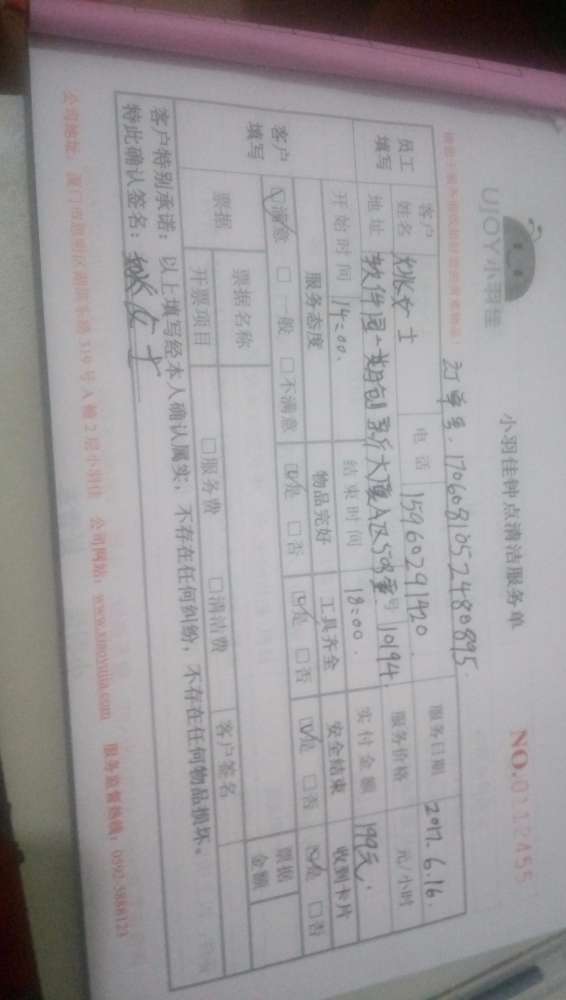 UJOY小羽佳
小羽佳钟点清洁服务单
NO.0112455
订单号:170608105248089​5.
员工填写
客户姓名 张女士 电话 15960291420 服务日期 2017.6.16.
地址 软件园一期创新大厦A区508室 号 10194 服务价格 元/小时
开始时间 14:00. 结束时间 18:00. 实付金额 199元.
客户填写
服务态度 物品完好 工具齐全 安全结束 收到卡片
☑满意 □一般 □不满意 ☑是 □否 ☑是 □否 ☑是 □否 ☑是 □否
票据 票据名称 票据金额
开票项目 □服务费 □清洁费 客户签名
客户特别承诺:以上填写经本人确认属实,不存在任何纠纷,不存在任何物品损坏。
特此确认签名:张女士
公司地址:厦门市思明区湖滨东路319号A幢2层小羽佳 公司网站:www.xiaoyujia.com 服务监督热线:0592-5888123